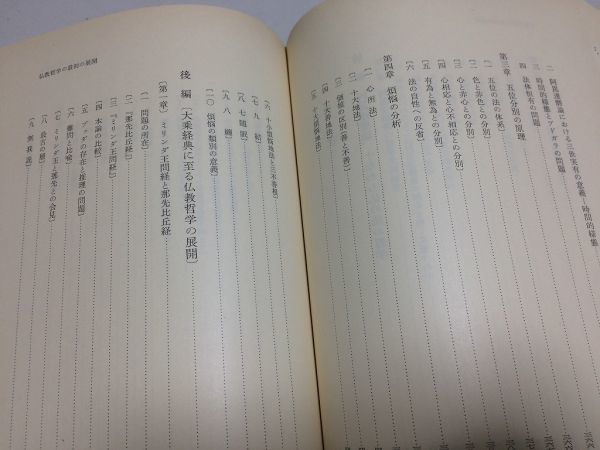 二 阿毘達磨論における三世実有の意義―時間的様態
三 時間的様態とプドガラの問題
四 法体恒有の問題
第三章 五位分別の原理
〔一〕 五位の法の体系〕
〔二〕 色と非色との分別〕
〔三〕 心と非心との分別〕
〔四〕 心相応と心不相応との分別〕
〔五〕 有為と無為との分別〕
〔六〕 法の自性への反省〕
第四章 煩悩の分析
〔一〕 心所法〕
〔二〕 十大地法〕
〔三〕 価値の区別(善と不善)〕
〔四〕 十大善地法〕
〔五〕 十大煩悩地法〕
〔六〕 十小煩悩地法と三不善根〕
〔七〕 九結〕
〔八〕 七随眠〕
〔九〕 八纏〕
〔一〇〕 煩悩の類別の意義〕
後編 〔大乗経典に至る仏教哲学の展開〕
〔第一章〕 ミリンダ王問経と那先比丘経
〔一〕 問題の所在〕
〔二〕 『那先比丘経』〕
〔三〕 『ミリンダ王問経』〕
〔四〕 本論の比較〕
〔五〕 ブッダの存在と推理の問題〕
〔六〕 難問と比喩〕
〔七〕 ミリンダ王と那先との会見〕
〔八〕 長老の層〕
〔九〕 無我説〕
仏教哲学の最初の展開